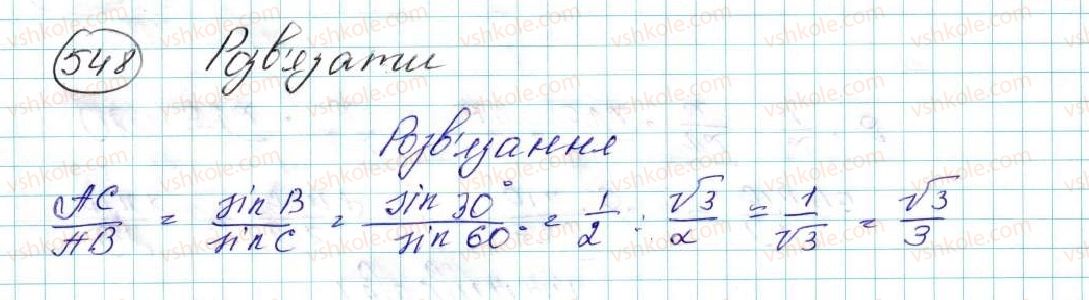 548 Розв'язати
Розв'язання
AC/AB = sin B/sin C = sin 30°/sin 60° = 1/2 : √3/2 = 1/√3 = √3/3
vshkole.com